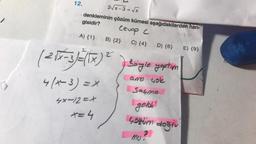 12.
2√x-3=√x
denkleminin çözüm kümesi aşağıdakilerden han-
gisidir?
Cevap C
A) {1} B) {2} C) {4} D) {6} E) {9}
(2√x-3)²=(√x)²
4(x-3)=x
4x-12=x
x=4
Böyle yaptım
ama çok
saçma
geldi
çözüm doğru
mu?